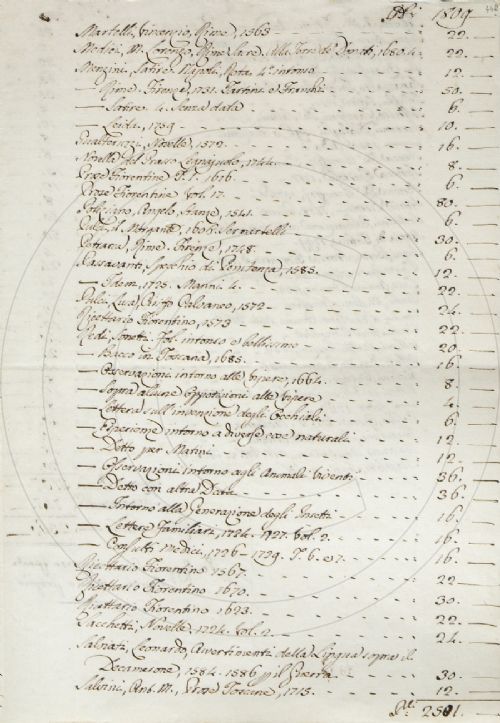 1809
Martelli, Vincenzio, Rime, 1563 22.
Medici, M. Lorenzo, Rime Sacre, alla Torre de' Donati, 1680. 4. 22.
Menzini, Satire Napoli, Nota. 4.º intonso 12.
— Rime. Firenze, 1731. Tartini e Franchi 50.
— Satire. 4. Senza data 6.
— Leida, 1759 10.
Gualteruzzi, Novelle, 1572 16.
Novella del Grasso Legnajuolo, 1744 8.
Prose Fiorentine T. 1. 1616 6.
Prose Fiorentine Vol. 17. 80.
Poliziano, Angelo, Stanze, 1541. 6.
Pulci, il Morgante, 1606. Sermartelli 30.
Petrarca, Rime. Firenze, 1748. 6.
Passavanti, Specchio di Penitenza, 1585. 12.
— Idem, 1725. Manni. 4. 22.
Pulci, Luca, Ciriffo Calvaneo, 1572 24.
Ricettario Fiorentino, 1573 22.
Redi, Sonetti. fol. intonso e bellissimo 20.
— Bacco in Toscana, 1685. 16.
— Osservazioni intorno alle Vipere, 1664. 8.
— Sopra alcune Opposizioni alle Vipere 4.
— Lettera sull'invenzione degli Occhiali 6.
— Esperienze intorno a diverse cose naturali 12.
— Detto per Marini 12.
— Osservazioni intorno agli Animali Viventi 36.
— Detto con altra Data 36.
— Intorno alla Generazione degl'Insetti 16.
— Lettere Familiari, 1724. 1727. Vol. 2. 16.
— Consulti Medici, 1726 - 1729. T. 6. e 7. 16.
Ricettario Fiorentino 1567. 22.
Ricettario Fiorentino 1670. 30.
Ricettario Fiorentino 1623. 22.
Sacchetti, Novelle, 1724. Vol. 2. 24.
Salviati, Leonardo, Avvertimenti della Lingua sopra il
Decamerone, 1584. 1586 il Guerra 30.
Salvini, Ant. M., Prose Toscane, 1715. 12.
2581.